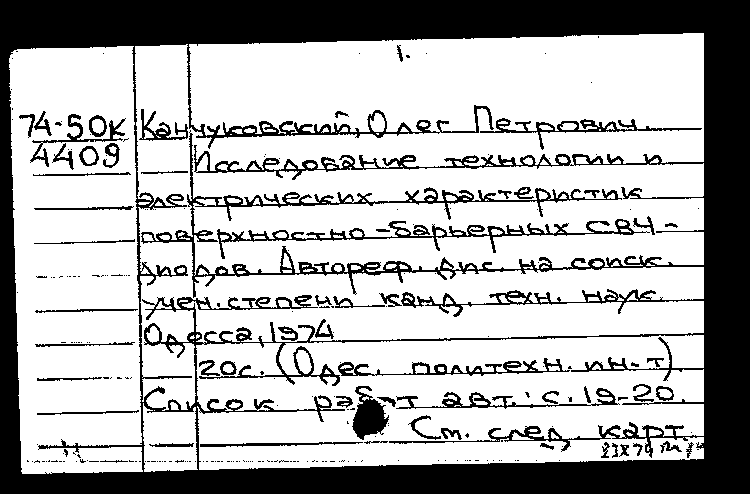 1.
74-50к Канчуковский, Олег Петрович.
4409 Исследование технологии и
электрических характеристик
поверхностно-барьерных СВЧ-
диодов. Автореф. дис. на соиск.
учен. степени канд. техн. наук.
Одесса, 1974
20с. (Одес. политехн. ин-т).
Список работ авт.: с. 19-20.
См. след. карт.